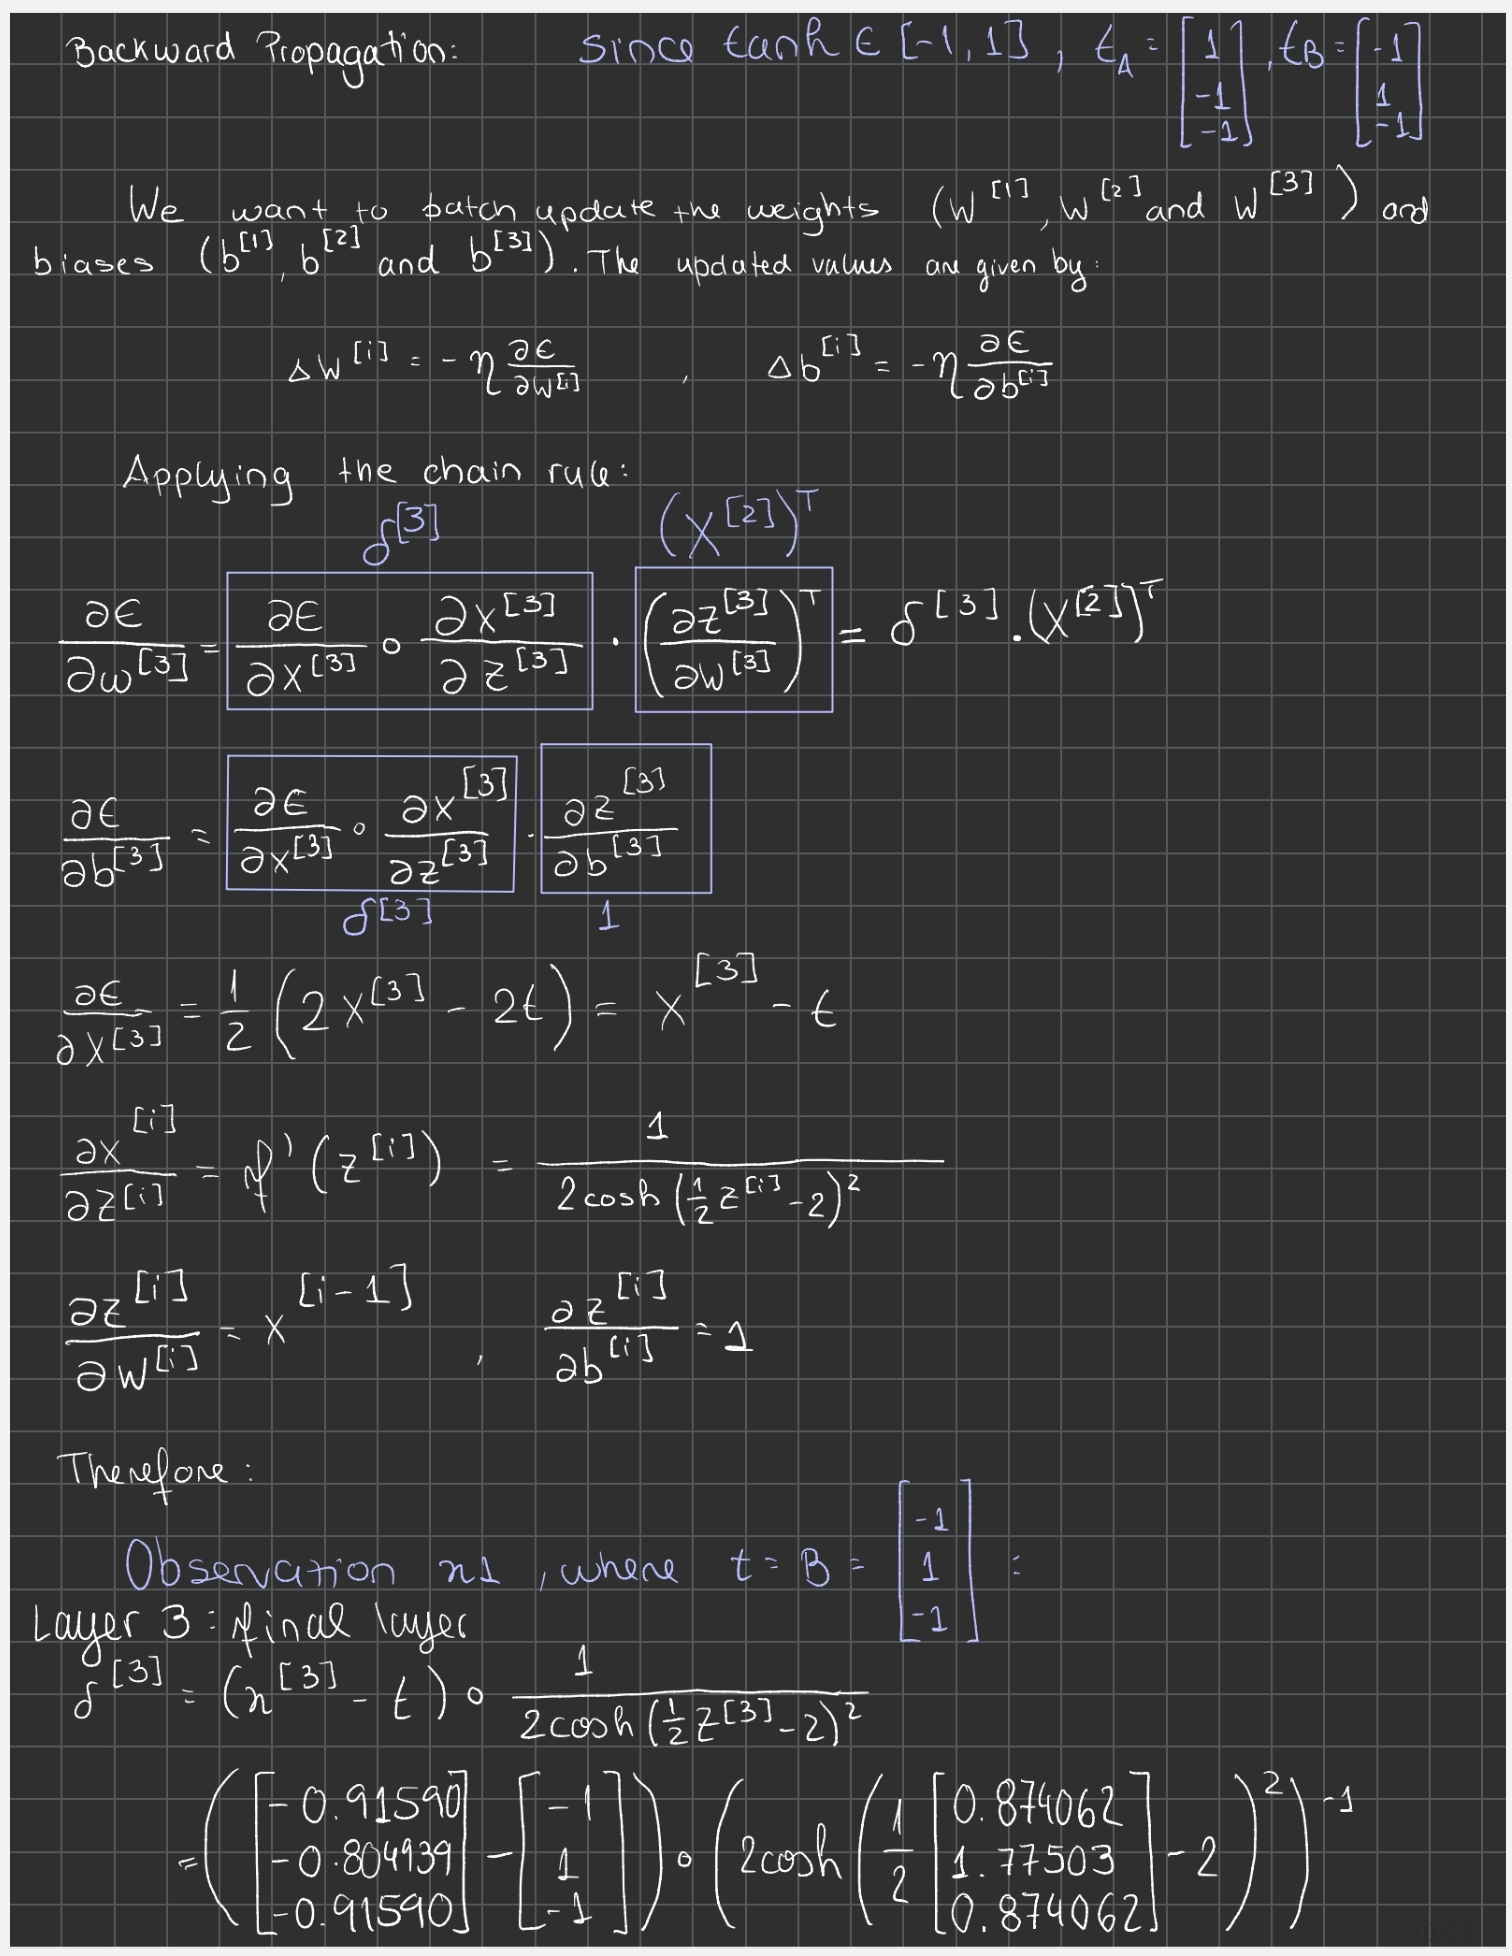 Backward Propagation: Since tanh ∈ [-1, 1], t_A = [1 -1 -1], t_B = [-1 1 -1]
We want to batch update the weights (W^[1], W^[2] and W^[3]) and
biases (b^[1], b^[2] and b^[3]). The updated values are given by:
ΔW^[i] = -η ∂ϵ/∂W^[i] , Δb^[i] = -η ∂ϵ/∂b^[i]
Applying the chain rule:
δ^[3] (X^[2])^T
∂ϵ/∂w^[3] = ∂ϵ/∂x^[3] ∘ ∂x^[3]/∂z^[3] · (∂z^[3]/∂w^[3])^T = δ^[3] . (X^[2])^T
∂ϵ/∂b^[3] = ∂ϵ/∂x^[3] ∘ ∂x^[3]/∂z^[3] · ∂z^[3]/∂b^[3]
δ^[3] 1
∂ϵ/∂x^[3] = 1/2 (2x^[3] - 2t) = x^[3] - t
∂x^[i]/∂z^[i] = f'(z^[i]) = 1/(2cosh(1/2 z^[i] - 2)^2)
∂z^[i]/∂w^[i] = x^[i-1] , ∂z^[i]/∂b^[i] = 1
Therefore:
Observation x1, where t = B = [-1 1 -1] :
Layer 3: final layer
δ^[3] = (x^[3] - t) ∘ 1/(2cosh(1/2 z^[3] - 2)^2)
= ([-0.91590 -0.804939 -0.91590] - [-1 1 -1]) ∘ (2cosh(1/2 [0.874062 1.77503 0.874062] - 2)^2)^-1